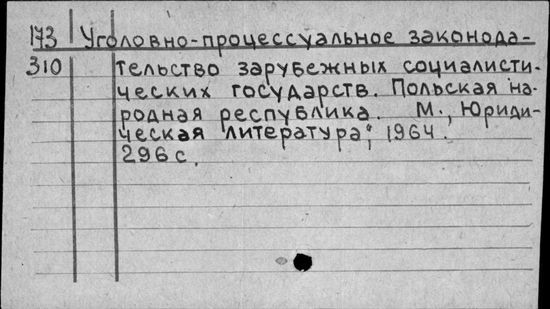 173 Уголовно-процессуальное законода-
310 тельство зарубежных социалисти-
ческих государств. Польская на-
родная республика. М., „Юриди-
ческая литература“, 1964.
296 с.